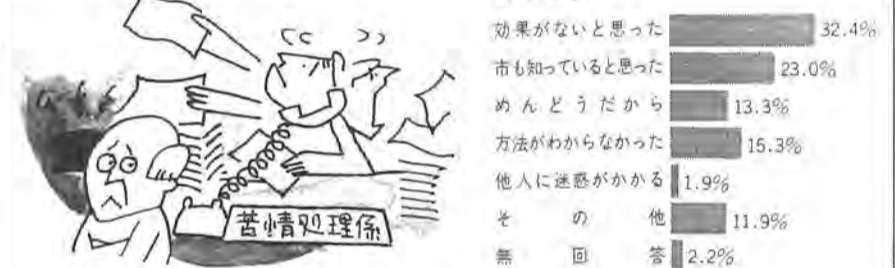 苦情処理係
効果がないと思った 32.4%
市も知っていると思った 23.0%
めんどうだから 13.3%
方法がわからなかった 15.3%
他人に迷惑がかかる 1.9%
その他 11.9%
無回答 2.2%